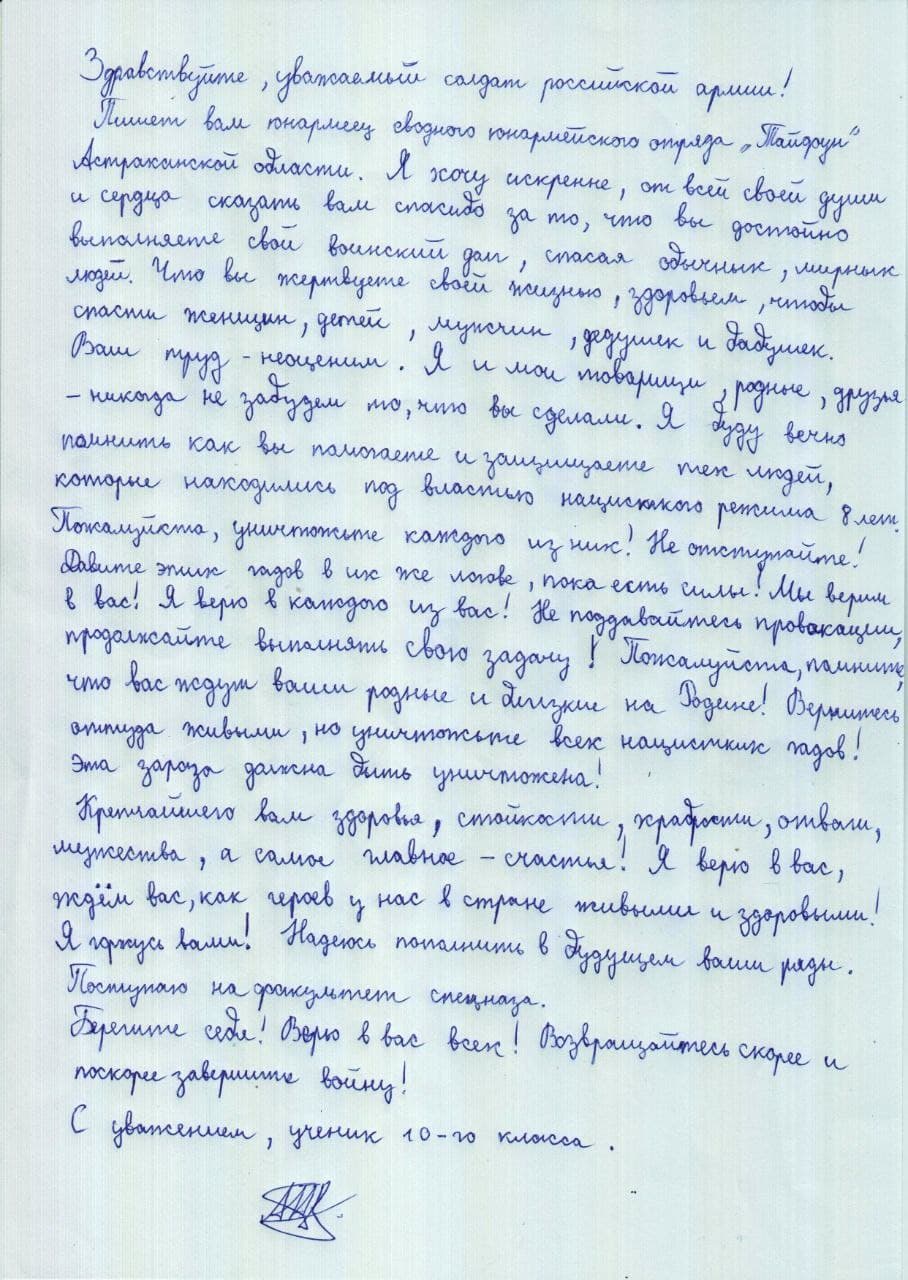 Здравствуйте, уважаемый солдат российской армии!
Пишет вам юнармеец сводного юнармейского отряда „Тайфун"
Астраханской области. Я хочу искренне, от всей своей души
и сердца сказать вам спасибо за то, что вы достойно
выполняете свой воинский долг, спасая обычных, мирных
людей. Что вы жертвуете своей жизнью, здоровьем, чтобы
спасти женщин, детей, мужчин, дедушек и бабушек.
Ваш труд - неоценим. Я и мои товарищи, родные, друзья
- никогда не забудем то, что вы сделали. Я буду вечно
помнить как вы помогаете и защищаете тех людей,
которые находились под властью нацисткого режима 8 лет.
Пожалуйста, уничтожьте каждого из них! Не отступайте!
Давите этих гадов в их же логове, пока есть силы! Мы верим
в вас! Я верю в каждого из вас! Не поддавайтесь провакации,
продолжайте выполнять свою задачу! Пожалуйста, помните,
что вас ждут ваши родные и близкие на Родине! Вернитесь
оттуда живыми, но уничтожьте всех нацистких гадов!
Эта зараза должна быть уничтожена!
Крепчайшего вам здоровья, стойкости, храбрости, отваги,
мужества, а самое главное - счастья! Я верю в вас,
ждём вас, как героев у нас в стране живыми и здоровыми!
Я горжусь вами! Надеюсь пополнить в будущем ваши ряды.
Поступаю на факультет спецназа.
Берегите себя! Верю в вас всех! Возвращайтесь скорее и
поскорее завершите войну!
С уважением, ученик 10-го класса.